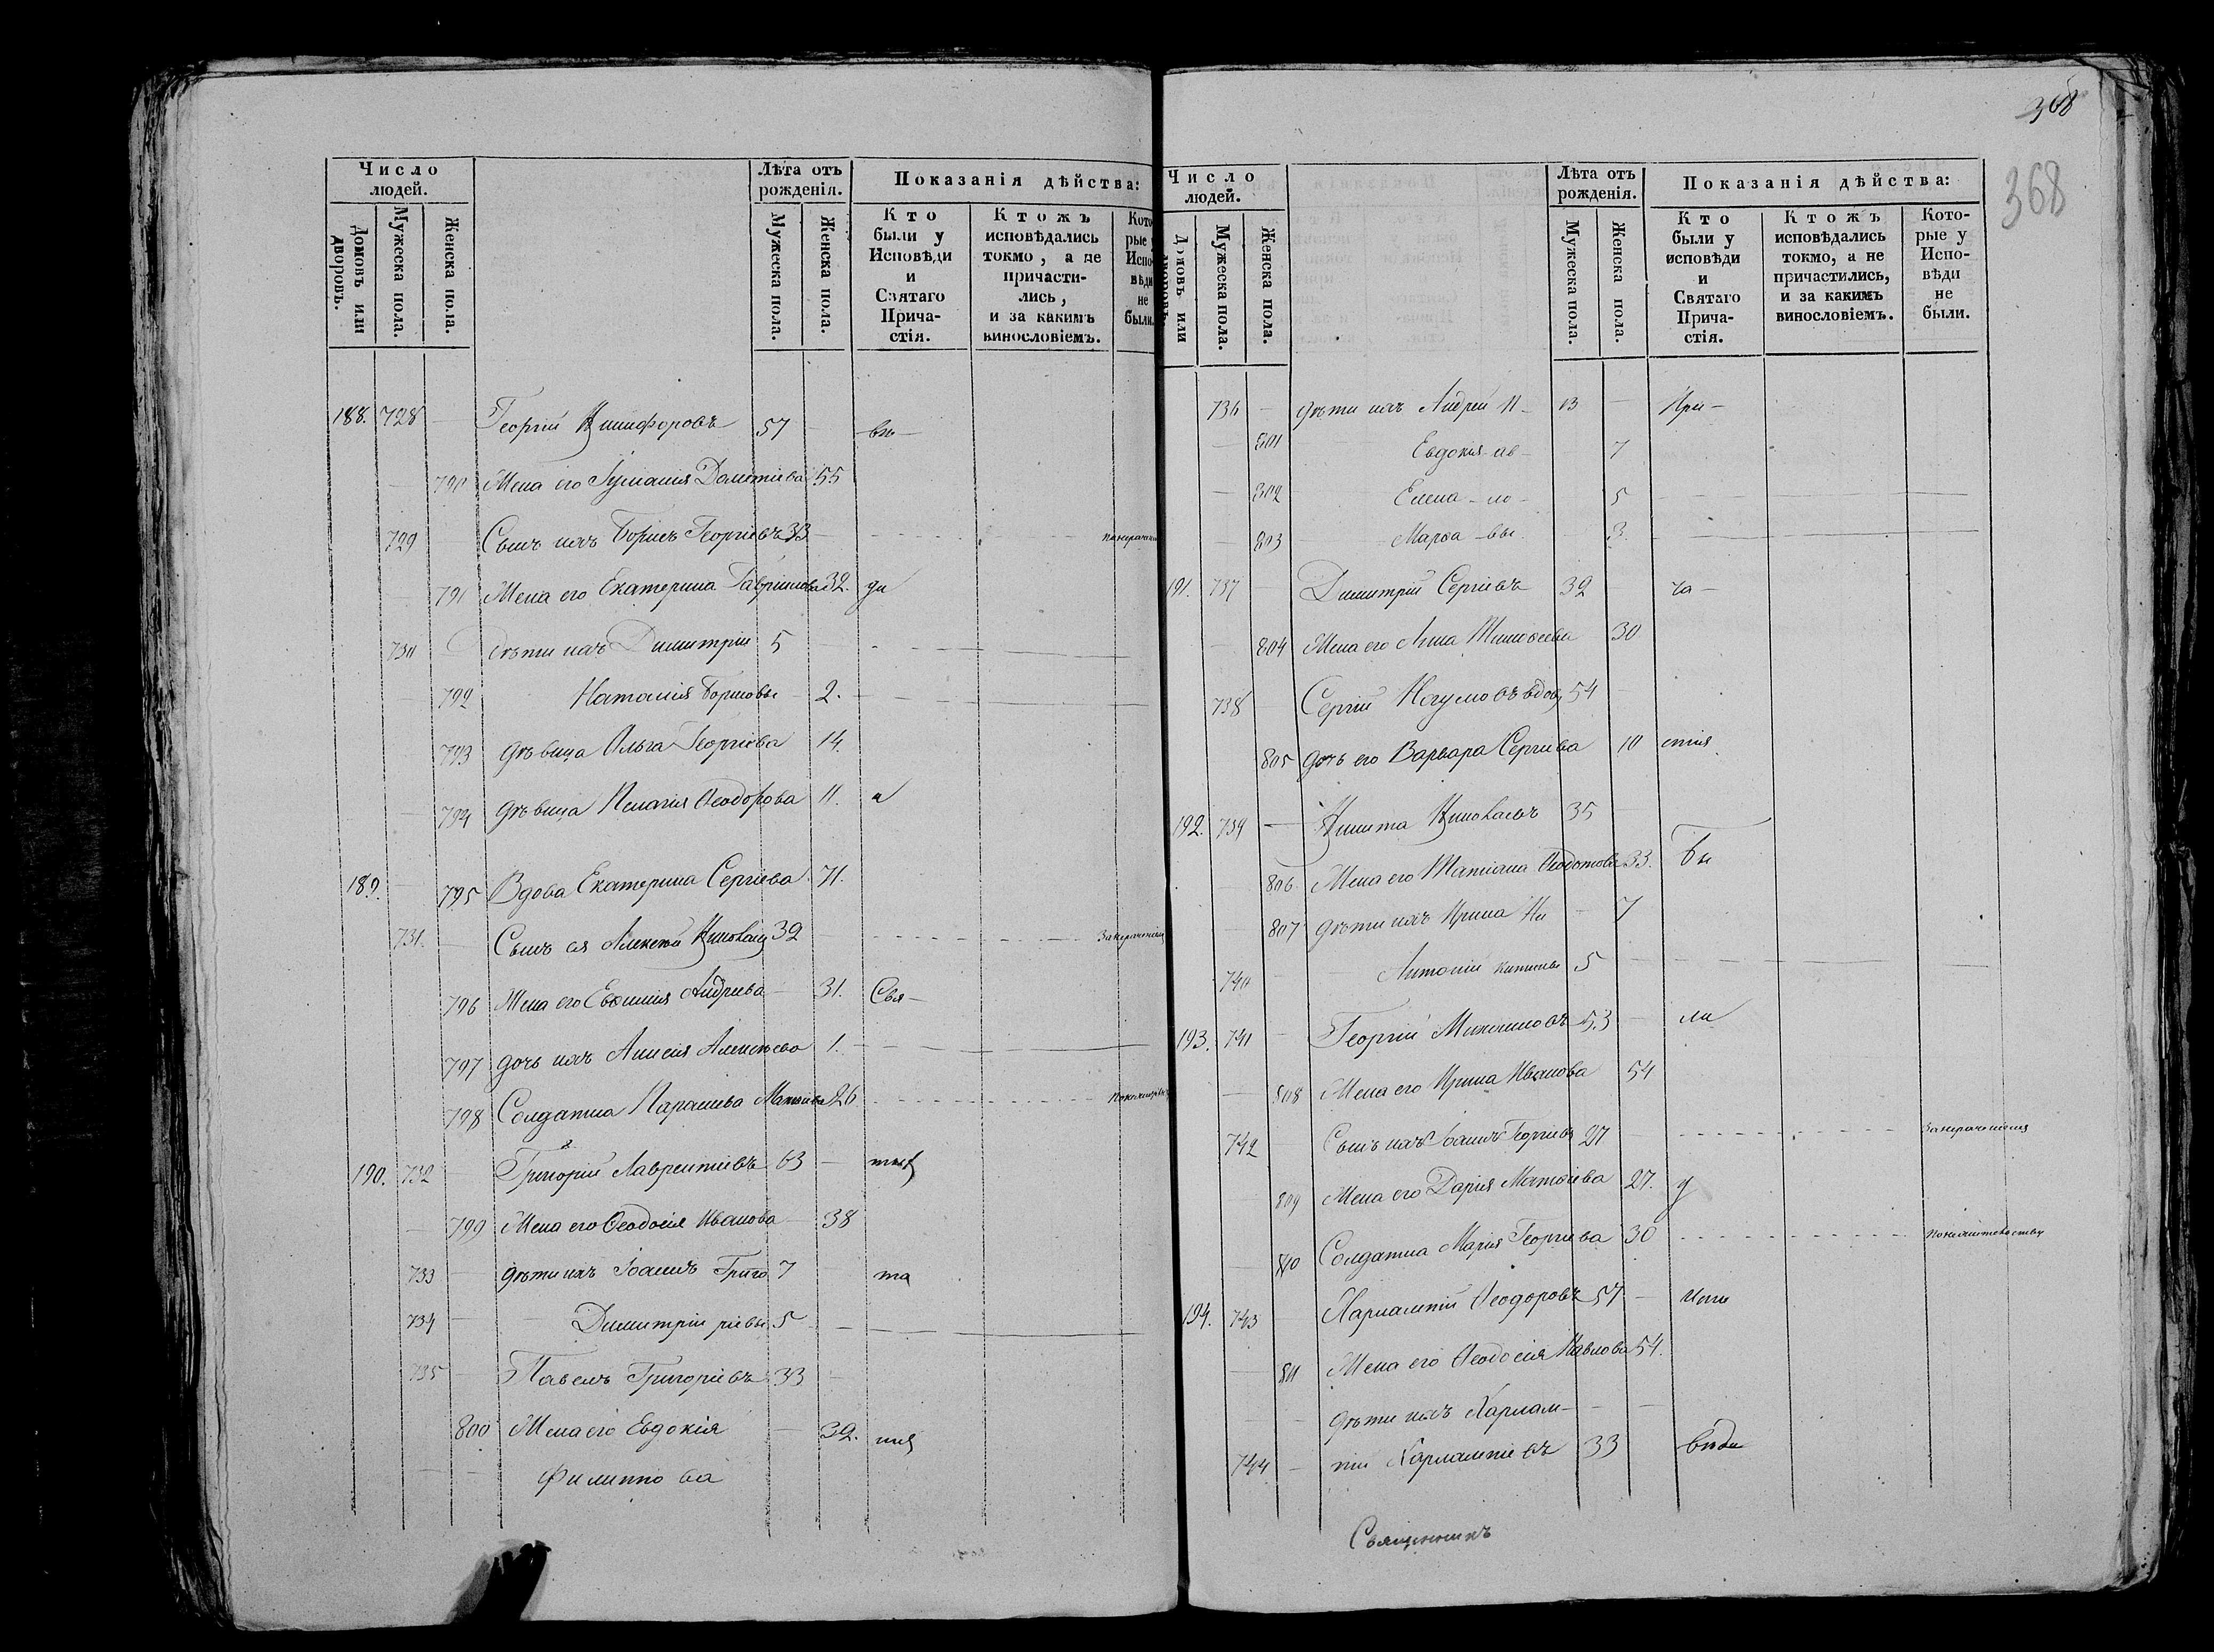 368
368
Число людей.
Лѣта отъ рожденія.
Показанія дѣйства:
Домовъ или дворовъ.
Мужеска пола.
Женска пола.
Мужеска пола.
Женска пола.
Кто были у Исповѣди и Святаго Прича-стія.
Ктожъ исповѣдались токмо, а не причасти-лись, и за какимъ винословіемъ.
Кото рые Испо вѣди не были.
188. 728 Георгій Никифоровъ 57 въ
790 Жена его Іуліанія Дометіева 55
729 Сынъ ихъ Борисъ Георгіевъ 33
791 Жена его Екатерина Гавриилова 32. ди
730 дѣти ихъ Димитрій 5
792 Наталія Борисовы 2.
793 дѣвица Ольга Георгіева 14.
794 дѣвица Пелагія Ѳеодорова 11. и
189. 795 Вдова Екатерина Сергіева 71.
731. Сынъ ея Алексѣй Николаев 32
796 Жена его Евѳимія Андреева 31. Свя
797 дочь ихъ Алексѣева 1.
798 Солдатка Параскева Матѳіева 26
190. 732 Григорій Лаврентіевъ 63
799 Жена его Ѳеодосія Иванова 38
733 дѣти ихъ Іоаннъ Григо 7 та
734 Димитрій ріевы 5
735 Павелъ Григоріевъ 33
800 Жена его Евдокія 32.
Филиппова
Число людей.
Лѣта отъ рожденія.
Показанія дѣйства:
Домовъ или дворовъ.
Мужеска пола.
Женска пола.
Мужеска пола.
Женска пола.
Кто были у исповѣди и Святаго Прича-стія.
Ктожъ исповѣдались токмо, а не причастились, и за какимъ винословіемъ.
Кото-рые у Испо-вѣди не были.
736 дѣти ихъ Андрей П 13 При
801 Евдокія ав 7
802 Елена ло 5
803 Марѳа вы 3.
191. 737 Димитрій Сергіевъ 32 ча
804 Жена его Анна Тимоѳеева 30
738 Сергій Наумовъ вдов 54
805 дочь его Варвара Сергіева 10 стія
192. 739 Никита Николаевъ 35
806 Жена его Татіана Ѳеодотова 33. бы
807 дѣти ихъ Ирина Ни 7
740 Антоній китины 5
193. 741 Георгій Максимовъ 53 ли
808 Жена его Ирина Иванова 54
742 Сынъ ихъ Іоаннъ Георгіевъ 27
809 Жена его Дарія Матѳіева 27. у
810 Солдатка Марія Георгіева 30
194. 743 Харлампій Ѳеодоровъ 57 Испо
811 Жена его Ѳеодосія Павлова 54.
дѣти ихъ Харлам-
744 пій Харлампіевъ 33 вѣди
Священникъ